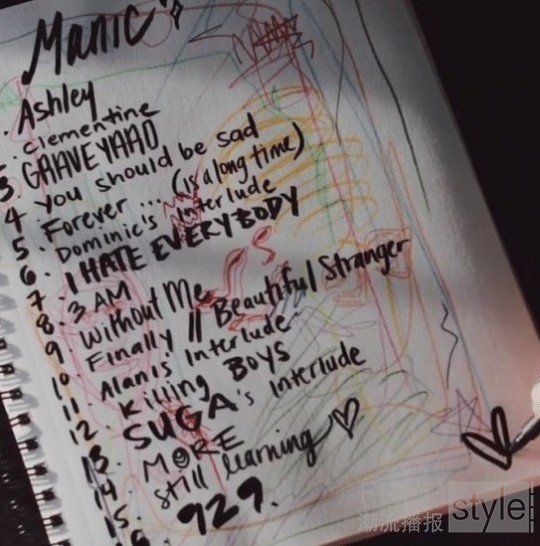 Manic
. Ashley
. clementine
3 GRAVEYARD
4. you should be sad
5. Forever... (is a long time)
6. Dominic's Interlude
7. I HATE EVERYBODY
8. 3AM
9. Without Me
10. Finally // Beautiful Stranger
11. Alanis' Interlude
12. killing BOYS
13. SUGA's Interlude
14. MORE
15. Still learning ♡
16. 929.
潮流播报 style